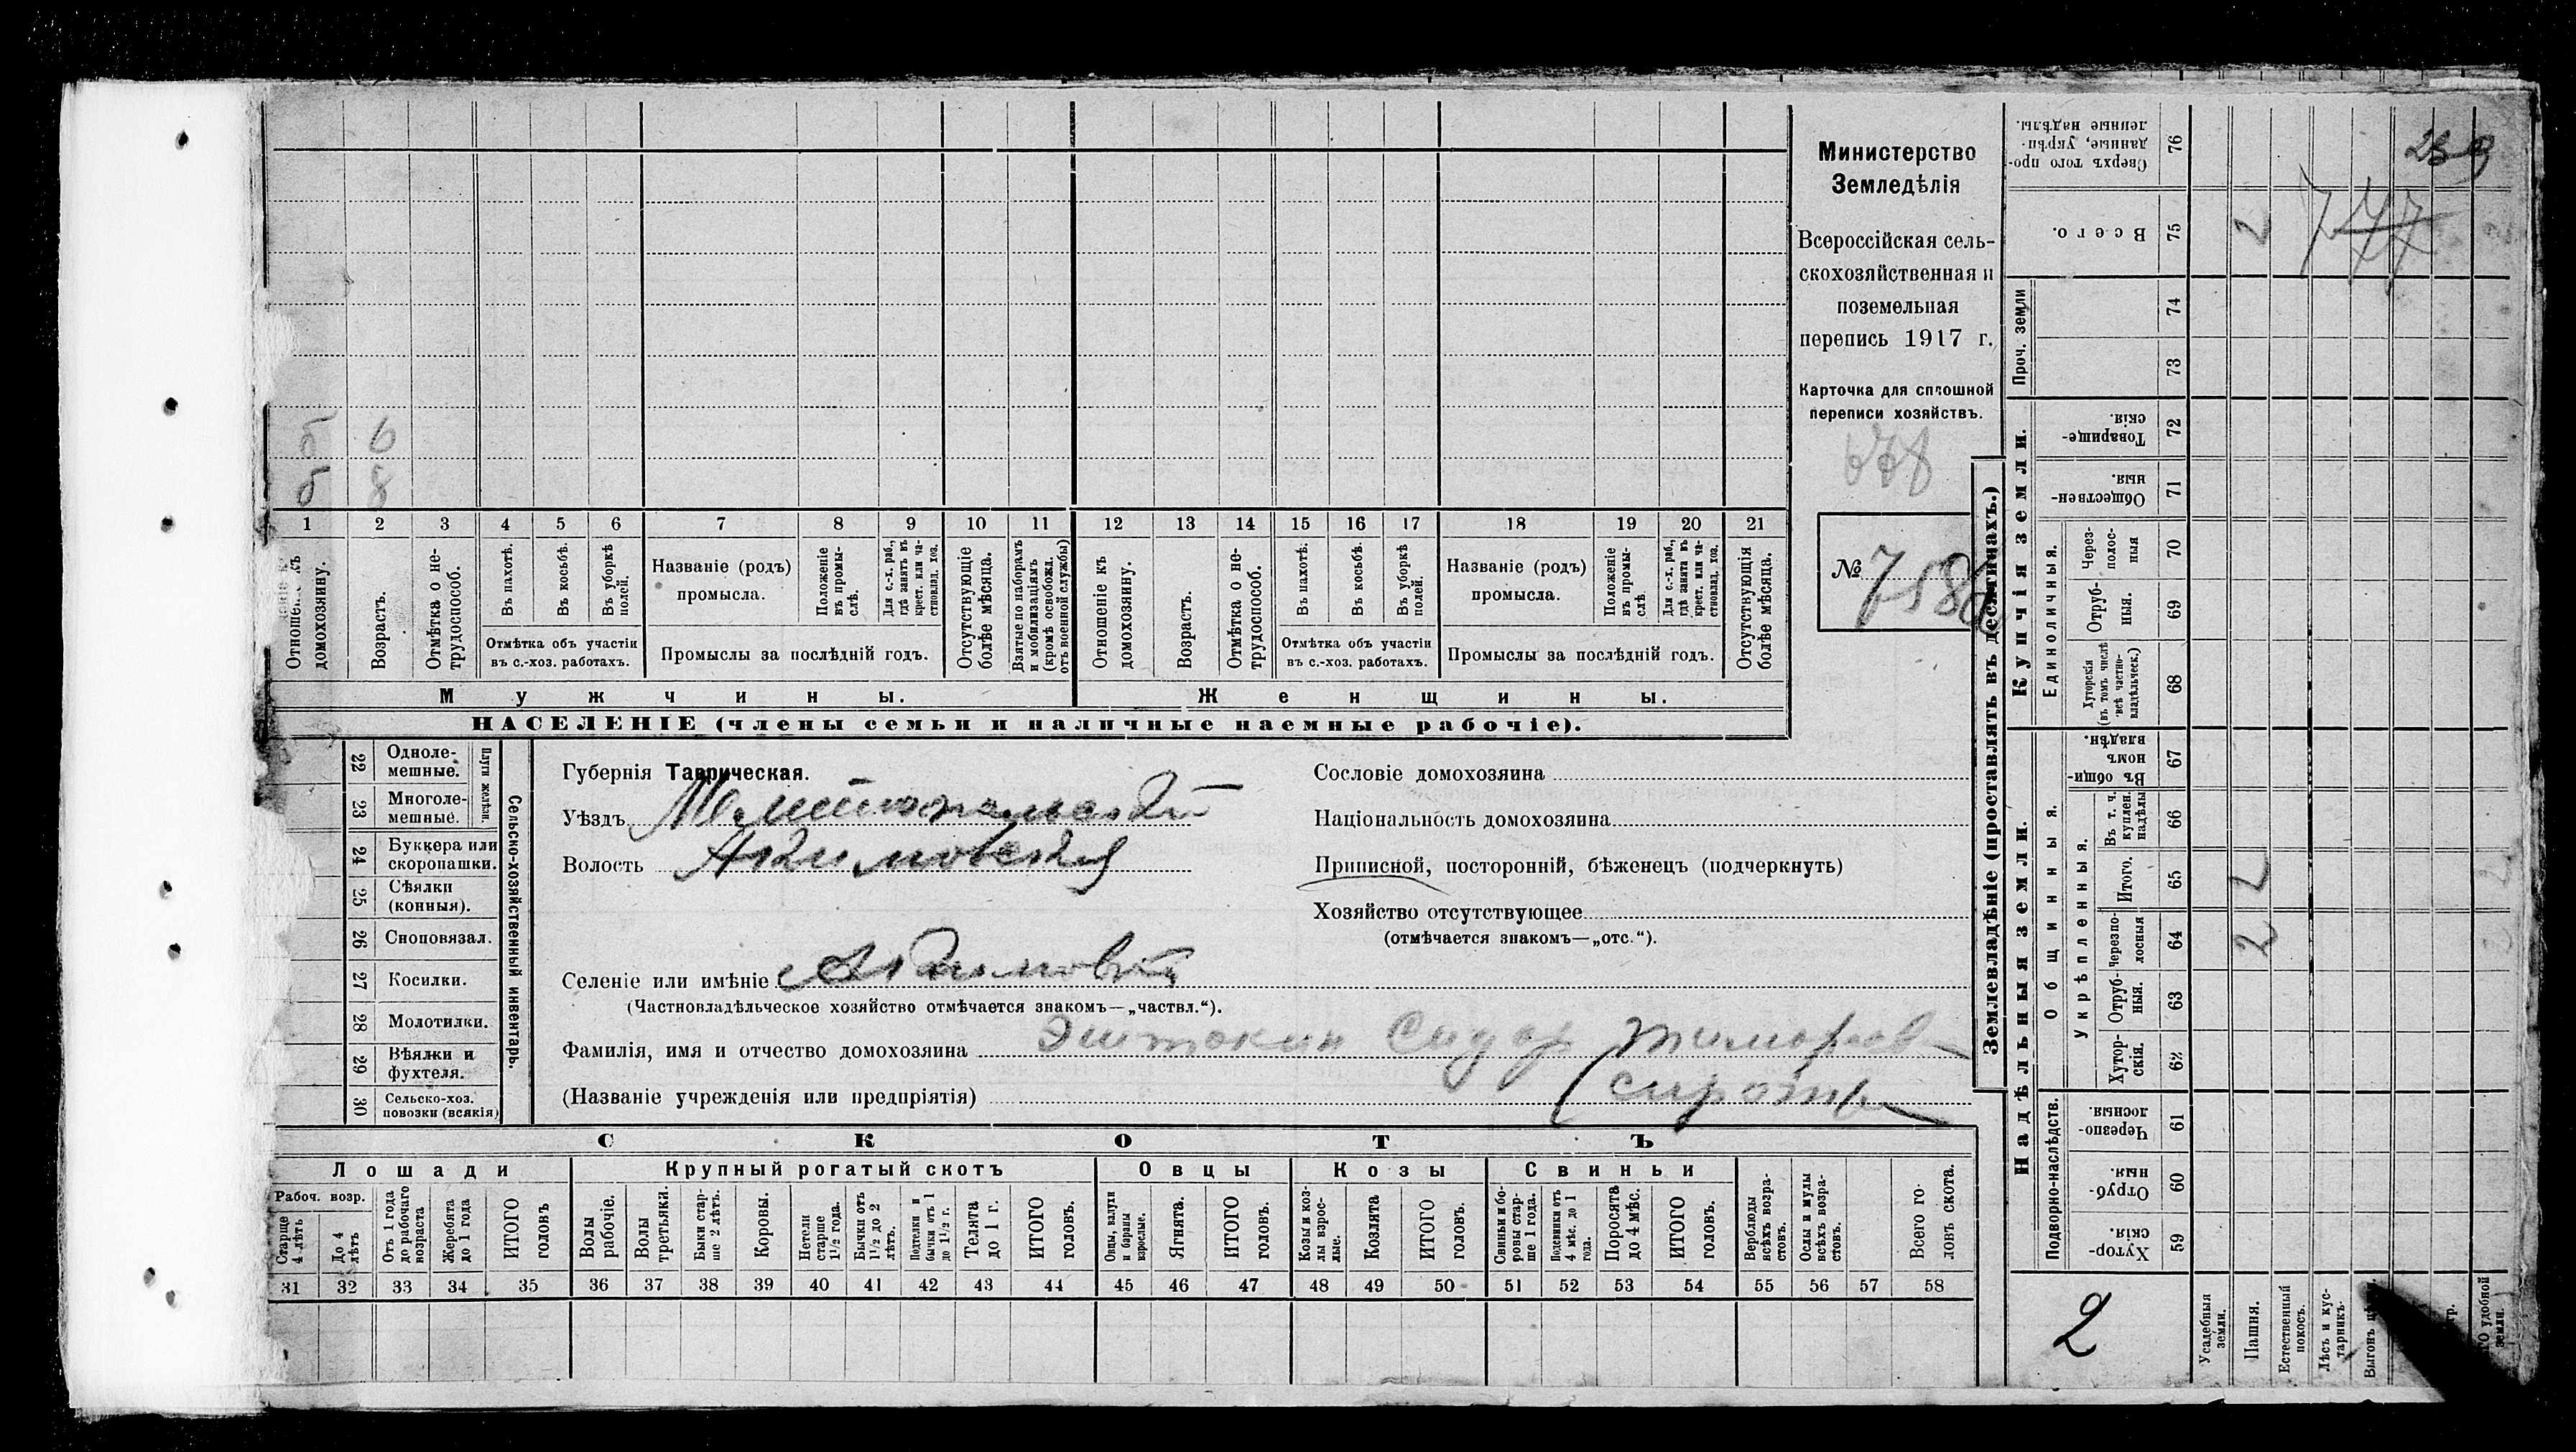 Министерство
Земледѣлія
Всероссійская сель-
скохозяйственная и
поземельная
перепись 1917 г.
Карточка для сплошной
переписи хозяйствъ.
№ 758
б 6
б 8
1 2 3 4 5 6 7 8 9 10 11 12 13 14 15 16 17 18 19 20 21
Отношеніе къ домохозяину.
Возрастъ.
Отмѣтка о не-
трудоспособ.
Въ пахотѣ.
Въ косьбѣ.
Въ уборкѣ
полей.
Отмѣтка объ участіи
въ с.-хоз. работахъ.
Названіе (родъ)
промысла.
Положеніе
въ промы-
слѣ.
Для с.-х. раб.,
гдѣ занятъ въ
крест. или ча-
стновлад. хоз.
Промыслы за послѣдній годъ.
Отсутствующіе
болѣе мѣсяца.
Взятые по наборамъ
и мобилизаціямъ
(кромѣ освобожд.
отъ военной службы)
Отношеніе къ
домохозяину.
Возрастъ.
Отмѣтка о не-
трудоспособ.
Въ пахотѣ.
Въ косьбѣ.
Въ уборкѣ
полей.
Отмѣтка объ участіи
въ с.-хоз. работахъ.
Названіе (родъ)
промысла.
Положеніе
въ промы-
слѣ.
Для с.-х. раб.,
гдѣ занята въ
крест. или ча-
стновлад. хоз.
Промыслы за послѣдній годъ.
Отсутствующія
болѣе мѣсяца.
Мужчины.
Женщины.
НАСЕЛЕНІЕ (члены семьи и наличные наемные рабочіе).
22 Одноле-
мешные.
23 Многоле-
мешные.
Плуги желѣзн.
24 Буккера или
скоропашки.
25 Сѣялки
(конныя).
26 Сноповязал.
27 Косилки.
28 Молотилки.
29 Вѣялки и
фухтеля.
30 Сельско-хоз.
повозки (всякія)
Сельско-хозяйственный инвентарь.
Губернія Таврическая.
Уѣздъ Мелитопольскій
Волость Акимовская
Селеніе или имѣніе Акимовка
(Частновладѣльческое хозяйство отмѣчается знакомъ—„частвл.“).
Фамилія, имя и отчество домохозяина Сидор Тимофеев
(Названіе учрежденія или предпріятія) (сироты
Сословіе домохозяина
Національность домохозяина
Приписной, посторонній, бѣженецъ (подчеркнуть)
Хозяйство отсутствующее
(отмѣчается знакомъ—„отс.“).
СКОТЪ
Лошади
Крупный рогатый скотъ
Овцы
Козы
Свиньи
Рабоч. возр.
Старше
4 лѣтъ
До 4
лѣтъ
Отъ 1 года
до рабочаго
возраста
Жеребята
до 1 года
ИТОГО
головъ
Волы
рабочіе.
Волы
третьяки.
Быки стар-
ше 2 лѣтъ.
Коровы.
Нетели
старше
1½ года.
Бычки отъ
1½ до 2
лѣтъ.
Подтелки и
бычки отъ 1
до 1½ г.
Телята
до 1 г.
ИТОГО
головъ.
Овцы, валухи
и бараны
взрослые.
Ягнята.
ИТОГО
головъ.
Козы и коз-
лы взрос-
лые.
Козлята
ИТОГО
головъ.
Свиньи и бо-
ровы стар-
ше 1 года.
Подсвинки отъ
4 мѣс. до 1
года.
Поросята
до 4 мѣс.
ИТОГО
головъ.
Верблюды
всѣхъ возра-
стовъ.
Ослы и мулы
всѣхъ возра-
стовъ.
Всего го-
ловъ скота.
31 32 33 34 35 36 37 38 39 40 41 42 43 44 45 46 47 48 49 50 51 52 53 54 55 56 57 58
Землевладѣніе (проставлять въ десятинахъ.)
Купчія земли.
Надѣльныя земли.
Проч. земли
Единоличныя.
Общинныя.
Укрѣпленныя.
Подворно-наслѣдств.
Сверхъ того про-
данные, укрѣп-
ленные надѣлы.
76
Всего.
75
74
73
Товарище-
скія.
72
Обществен-
ныя.
71
Через-
полос-
ныя
70
Отруб-
ныя.
69
Хуторскія
(въ томъ числѣ
всѣ частно-
владѣльческ.)
68
Въ общи-
номъ
владѣн.
67
Въ т. ч.
куплен.
надѣлы
66
Итого.
65
Черезпо-
лосныя
64
Отруб-
ныя.
63
Хутор-
скія.
62
Черезпо-
лосныя
61
Отруб-
ныя.
60
Хутор-
скія.
59
2
2
2
2
Усадебныя
земли.
Пашня.
Естественный
покосъ.
Лѣсъ и кус-
тарникъ.
Выгонъ
удобной
земли.